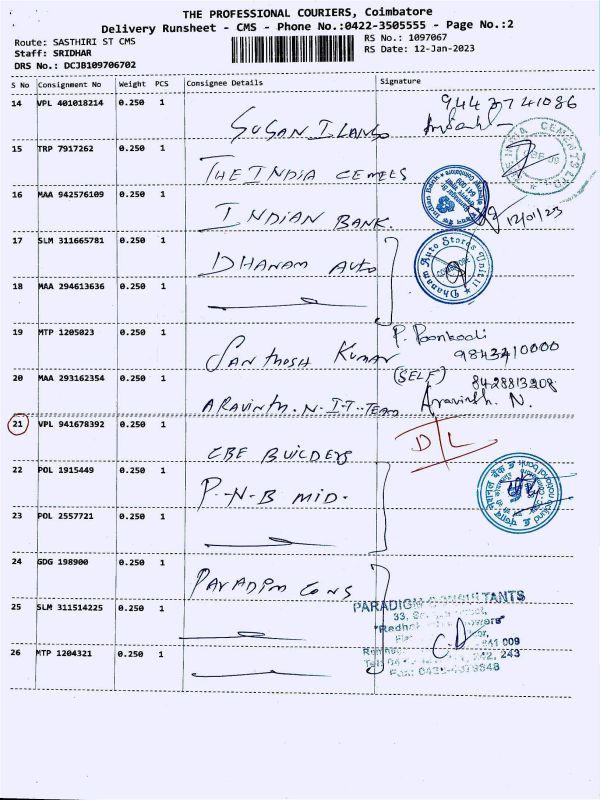 THE PROFESSIONAL COURIERS, Coimbatore
Delivery Runsheet - CMS - Phone No.:0422-3505555 - Page No.:2
Route: SASTHIRI ST CMS
Staff: SRIDHAR
DRS No.: DCJB109706702
RS No.: 1097067
RS Date: 12-Jan-2023
S No Consignment No Weight PCS Consignee Details Signature
14 VPL 401018214 0.250 1 SUSAN ILANGO
15 TRP 7917262 0.250 1 THE INDIA CEMEES
16 MAA 942576109 0.250 1 INDIAN BANK. 12/01/23
17 SLM 311665781 0.250 1 DHANAM AUTO Dhanam Auto Stores Unit II
18 MAA 294613636 0.250 1
19 MTP 1205023 0.250 1 SANTHOSH KUMAR P. Poonkodi
20 MAA 293162354 0.250 1 ARAVINTH.N.I.T.TEAM (SELF) Aravinth. N.
21 VPL 941678392 0.250 1 CBE BUILDERS D/L
22 POL 1915449 0.250 1 P.N.B MID.
23 POL 2557721 0.250 1
24 GDG 198900 0.250 1 PARADIM CONS
PARADIGM CONSULTANTS
25 SLM 311514225 0.250 1
26 MTP 1204321 0.250 1